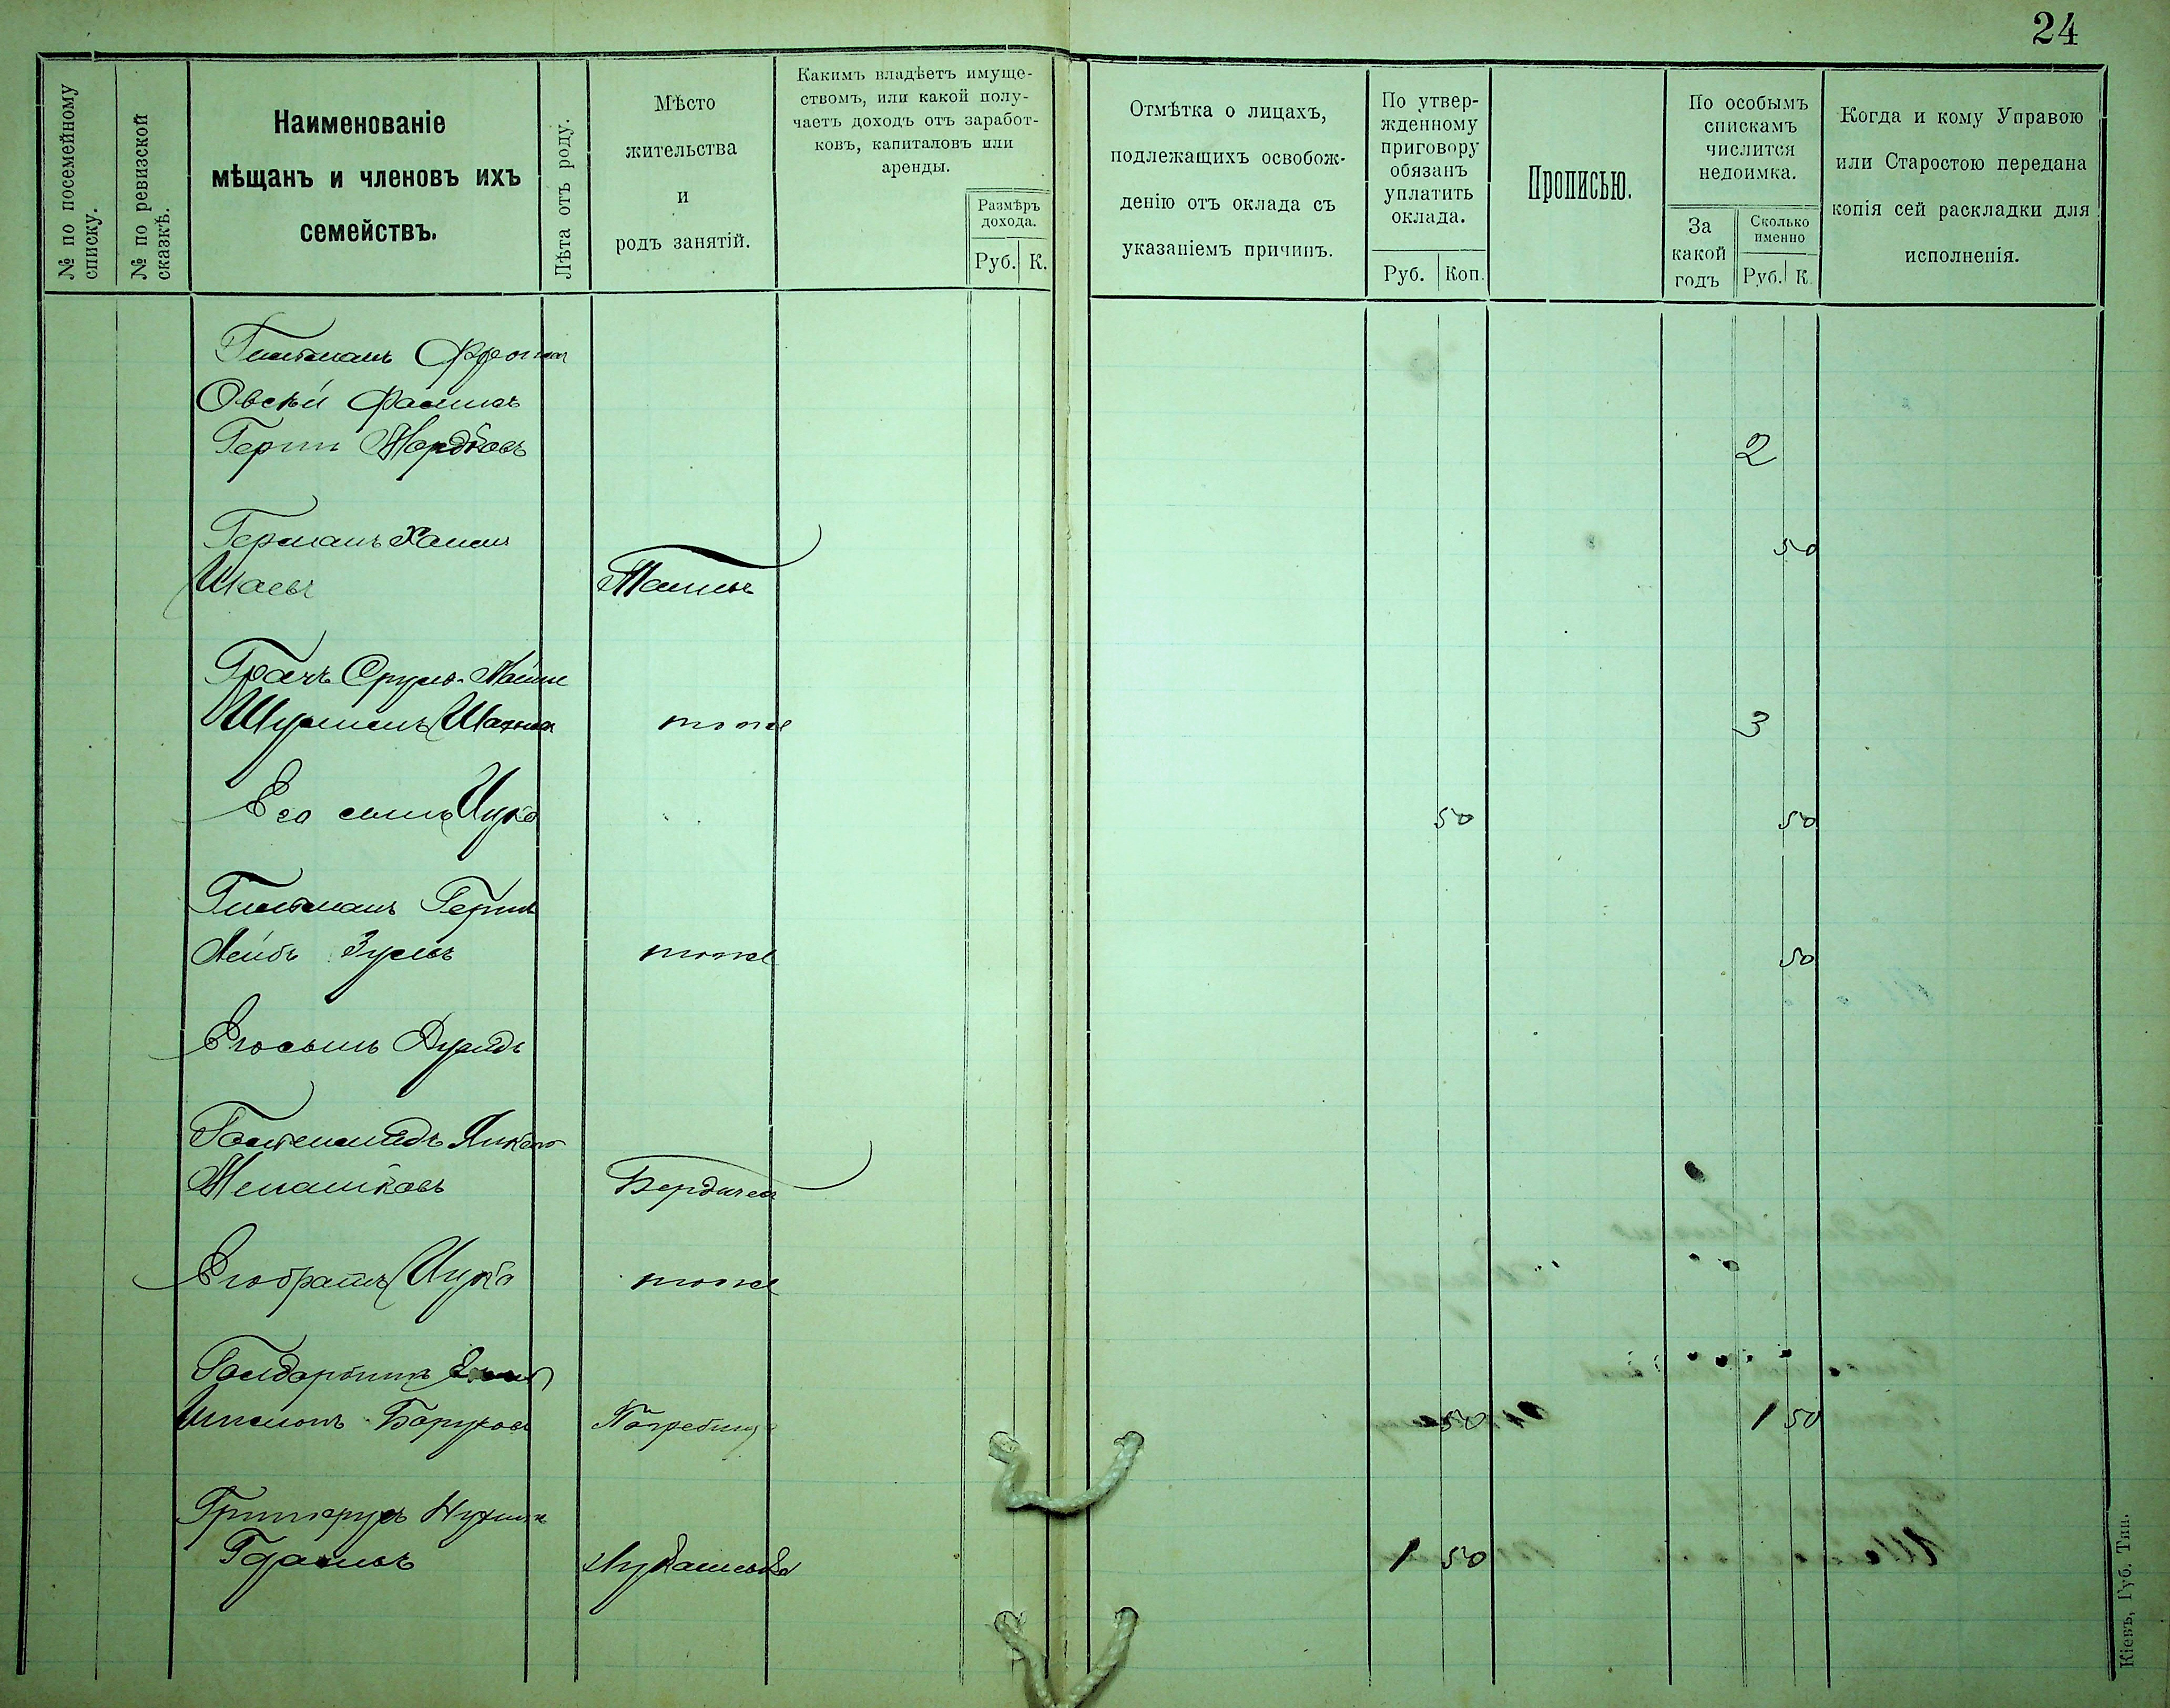 24
№ по посемейному списку.
№ по ревизской сказкѣ.
Наименованіе
мѣщанъ и членовъ ихъ
семействъ.
Лѣта отъ роду.
Мѣсто
жительства
и
родъ занятій.
Какимъ владѣетъ имуще-
ствомъ, или какой полу-
чаетъ доходъ отъ заработ-
ковъ, капиталовъ или
аренды.
Размѣръ
дохода.
Руб. К.
Отмѣтка о лицахъ,
подлежащихъ освобож-
денію отъ оклада съ
указаніемъ причинъ.
По утвер-
жденному
приговору
обязанъ
уплатить
оклада.
Руб. Коп.
Прописью.
По особымъ
спискамъ
числится
недоимка.
За
какой
годъ
Сколько
именно
Руб. К.
Когда и кому Управою
или Старостою передана
копія сей раскладки для
исполненія.
Гительманъ
Герш Мордковъ 2
Германъ Хаимъ 50
Шаевъ
Грачъ Срулъ
Шулимъ тоже 3
Его сынъ Ицко 50 50
Гительманъ Герш
Лейбъ Зусевъ тоже 50
Его сынъ Дувидъ
Янкель
Менашковъ Бердичев
Его братъ Ицко тоже
Шлемъ Боруховъ Погребище 50 1 50
Нухим
Лукашевка 1 50
Кіевъ, Губ. Тип.